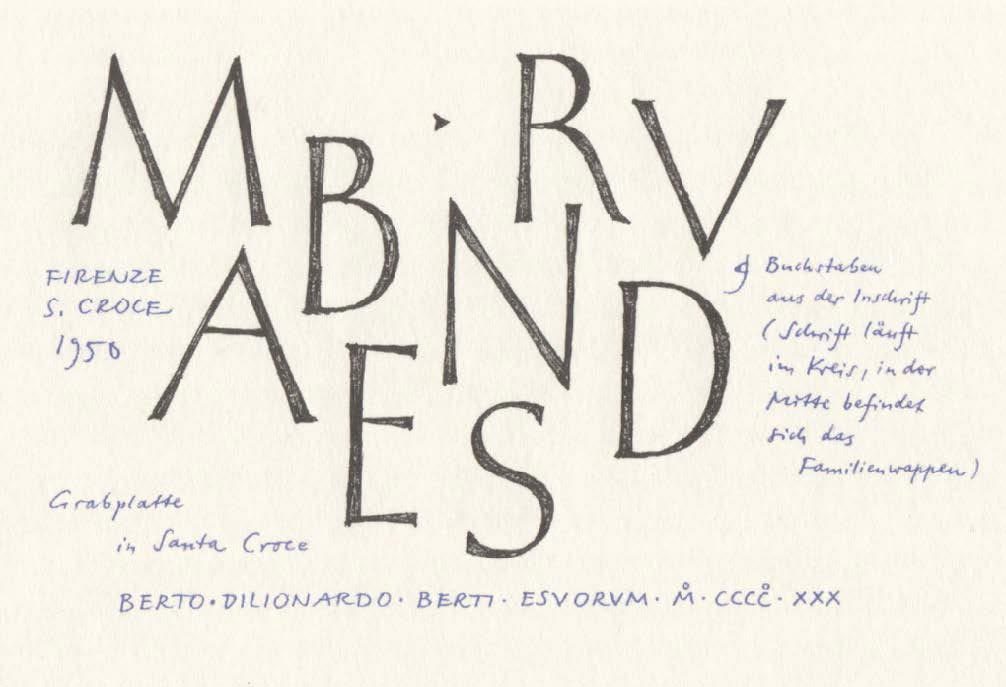 M B R V
A N D
E S
FIRENZE
S. CROCE
1950
Buchstaben
aus der Inschrift
(Schrift läuft
im Kreis, in der
Mitte befindet
sich das
Familienwappen)
Grabplatte
in Santa Croce
BERTO·DILIONARDO·BERTI·ESVORVM·M̊·CCCC̊·XXX